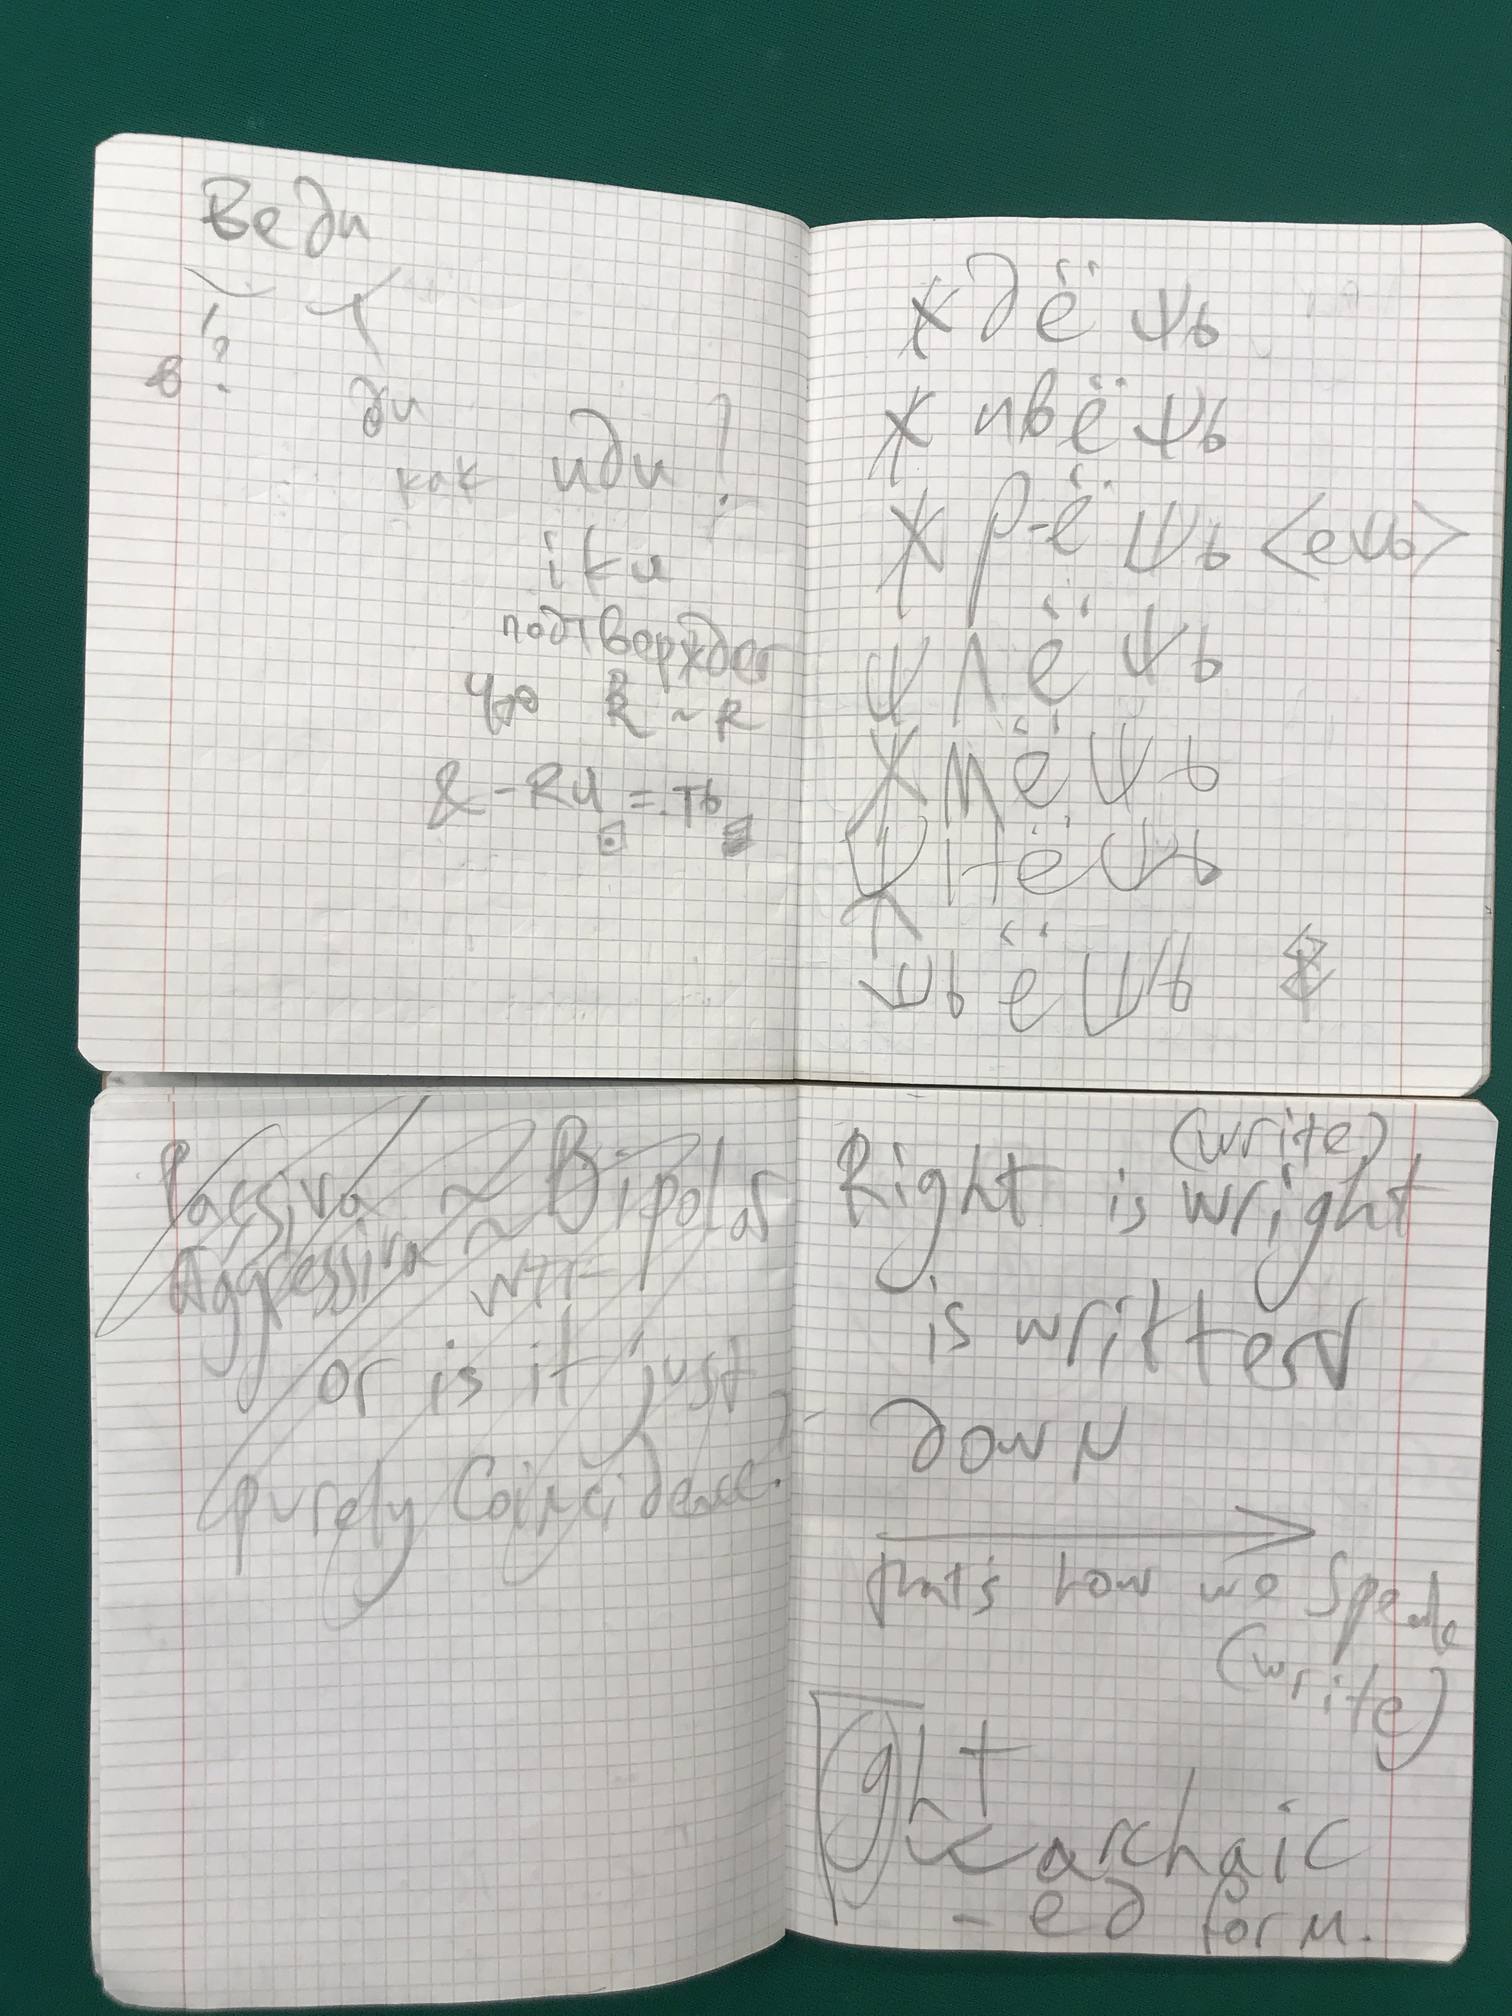 Веди
в ?
ди
как иди!
iku
подтверждает
что
= ть
ждёшь
живёшь
жр-ёшь <ешь>
шлёшь
жмёшь
шьёшь
Passiva ~ Bipolar
Aggressiva ~
wtf
or is it just
purely Coincidence.
(write)
Right is wright
is written
down
that's how we speak
(write)
ght
archaic
-ed form.